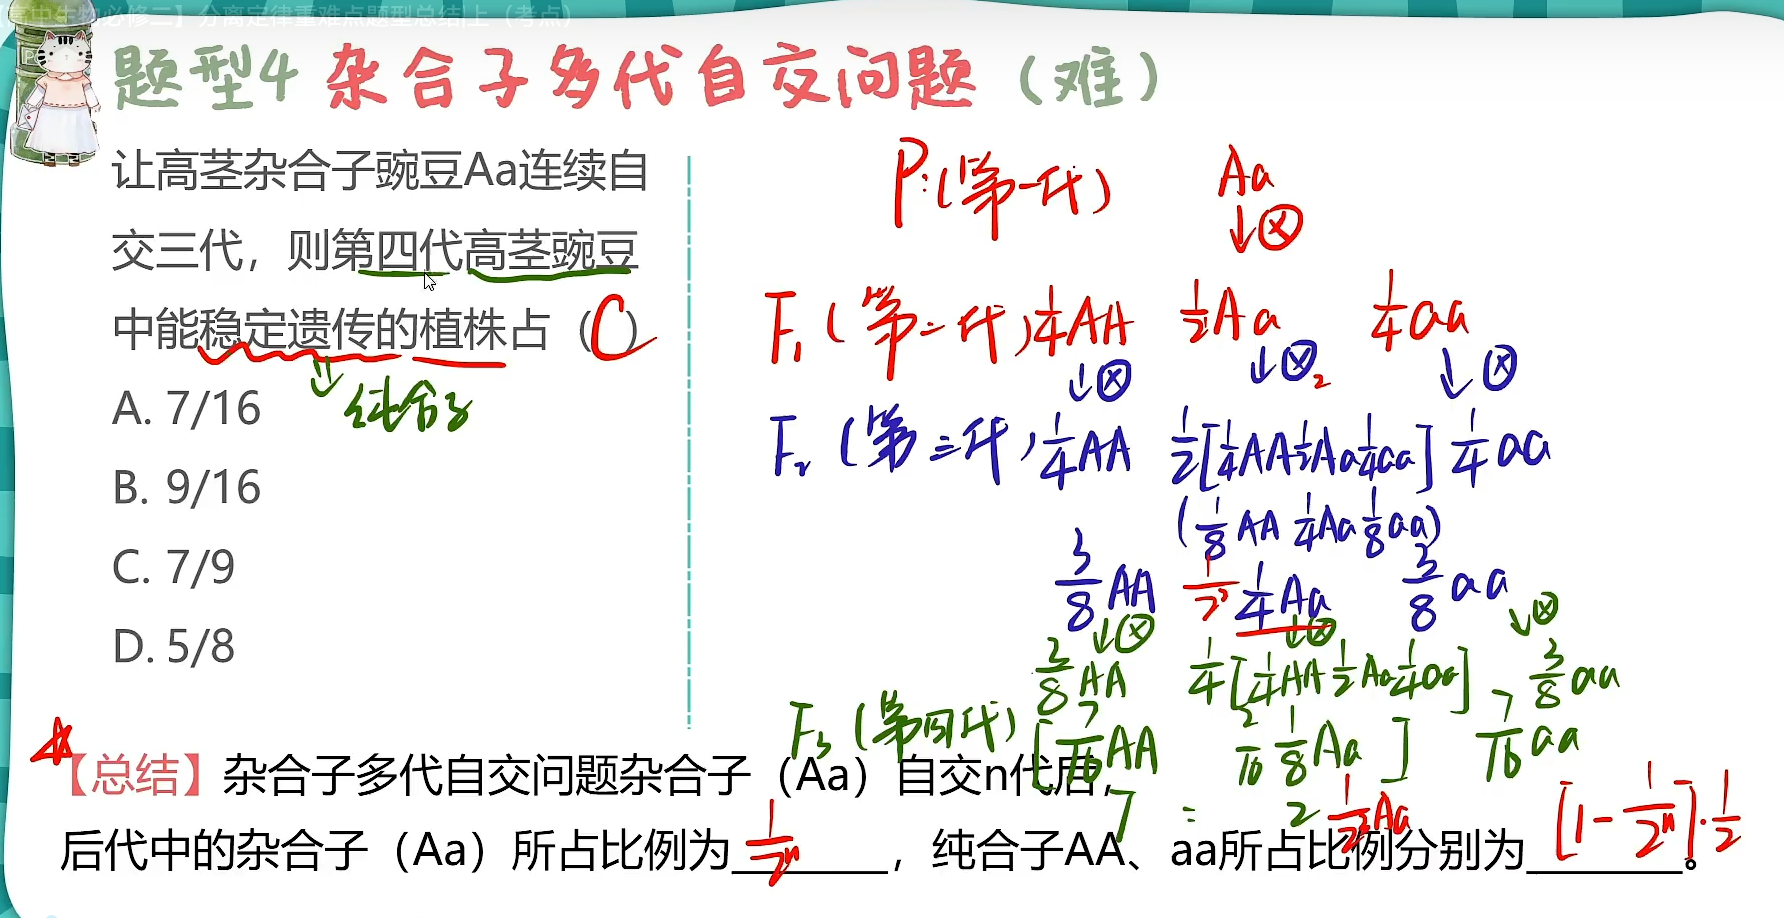 【高中生物必修二】分离定律重难点题型总结上（考点）
题型4 杂合子多代自交问题（难）
让高茎杂合子豌豆Aa连续自
交三代，则第四代高茎豌豆
中能稳定遗传的植株占（C）
纯合子
A. 7/16
B. 9/16
C. 7/9
D. 5/8
P:(第一代) Aa
↓⊗
F₁(第二代) 1/4AA 1/2Aa 1/4aa
↓⊗ ↓⊗ ↓⊗
F₂(第三代) 1/4AA 1/2[1/4AA 1/2Aa 1/4aa] 1/4aa
(1/8AA 1/4Aa 1/8aa)
3/8AA 1/2² 1/4Aa 3/8aa
↓⊗ ↓⊗ ↓⊗
3/8AA 1/4[1/4AA 1/2Aa 1/4aa] 3/8aa
F₃(第四代) [7/16AA 2/16 1/8Aa] 7/16aa
7 : 2 1/2³Aa
【总结】杂合子多代自交问题杂合子（Aa）自交n代后，
后代中的杂合子（Aa）所占比例为1/2ⁿ，纯合子AA、aa所占比例分别为[1-1/2ⁿ]·1/2。